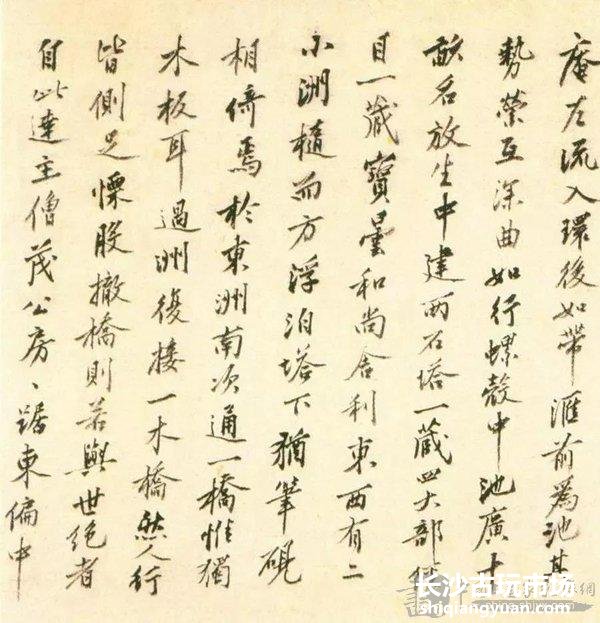 庵左流入環後如帶匯前為池其
勢縈互深曲如行螺殼中池廣十
畝名放生中建兩石塔一藏四大部經
目一藏寶曇和尚舍利東西有二
小洲橢而方浮泊塔下猶筆硯
相倚焉於東洲南次通一橋惟獨
木板耳過洲復接一木橋然人行
皆側足慄股撤橋則若與世絕者
自此達主僧茂公房、踞東偏中
长沙古玩市场
shiqiangyuan.com